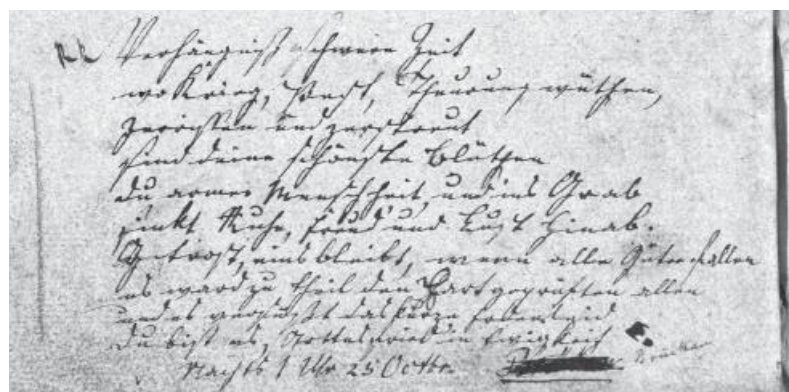 Verhängniß schwere Zeit
wo Krieg, Pest, Theurung wüthen,
zerrissen und zerstreut
sind deine schönste Blüthen
du arme Menschheit, und ins Grab
sinkt Ruhe, Freud und Lust hinab.
Getrost, eins bleibt, wenn alle Güter fallen
es ward zu theil den Hartgeprüften allen
und es versüßt das kurze
du bist es, in Ewigkeit
Nachts 1 Uhr 25 Octbr